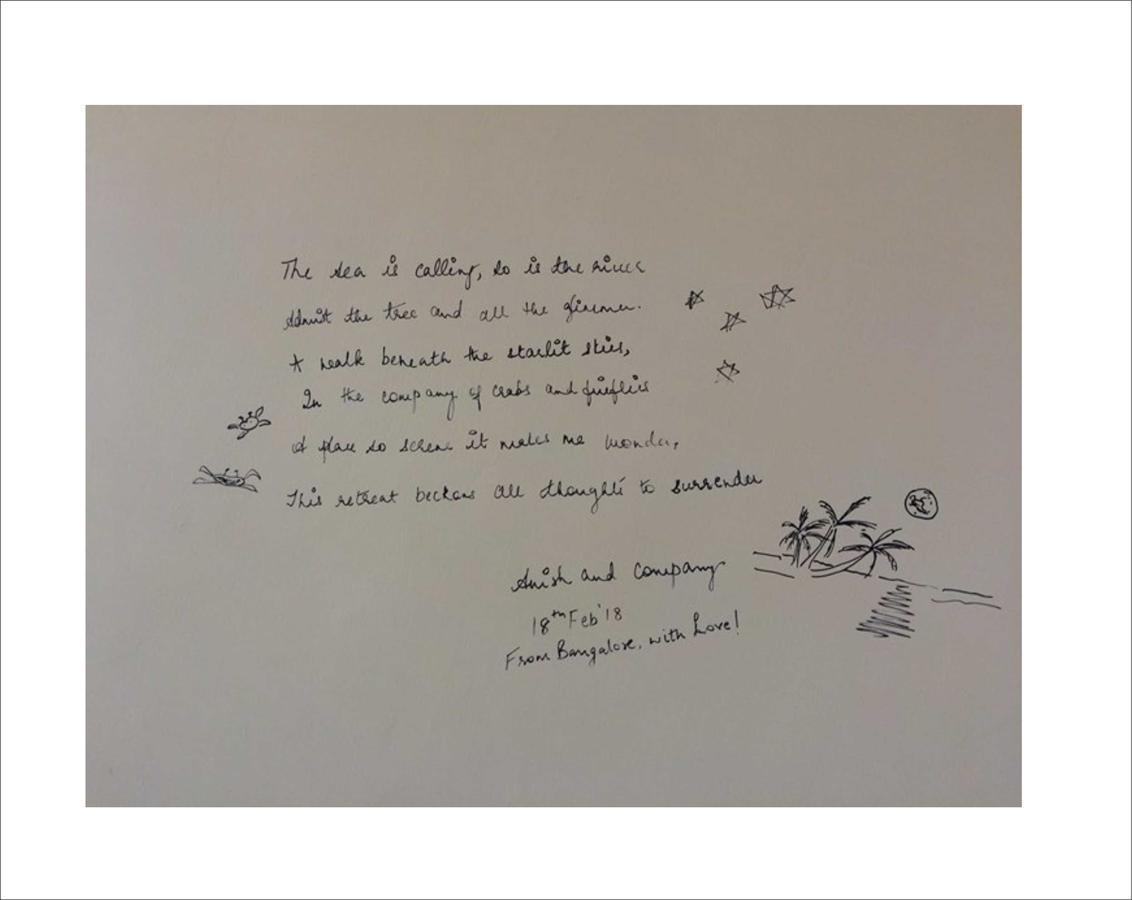 The sea is calling, so is the river
Admist the tree and all the glimmer.
A walk beneath the starlit skies,
In the company of crabs and fireflies
A place so serene it makes me wonder,
This retreat beckons all thoughts to surrender
Anish and company
18th Feb'18
From Bangalore, with Love!